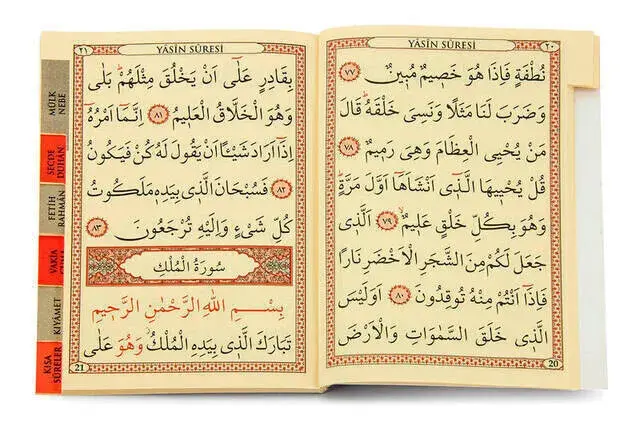 YÂSÎN SÛRESİ
٢٠
نُطْفَةٍ فَاِذَا هُوَ خَصٖيمٌ مُبٖينٌ ﴿٧٧﴾
وَضَرَبَ لَنَا مَثَلًا وَنَسِىَ خَلْقَهُ قَالَ
مَنْ يُحْيِى الْعِظَامَ وَهِىَ رَمٖيمٌ ﴿٧٨﴾
قُلْ يُحْيٖيهَا الَّذٖى اَنْشَاَهَا اَوَّلَ مَرَّةٍ
وَهُوَ بِكُلِّ خَلْقٍ عَلٖيمٌ ﴿٧٩﴾ اَلَّذٖى
جَعَلَ لَكُمْ مِنَ الشَّجَرِ الْاَخْضَرِ نَارًا
فَاِذَا اَنْتُمْ مِنْهُ تُوقِدُونَ ﴿٨٠﴾ اَوَلَيْسَ
الَّذٖى خَلَقَ السَّمٰوَاتِ وَالْاَرْضَ
20
YÂSÎN SÛRESİ
٢١
بِقَادِرٍ عَلٰٓى اَنْ يَخْلُقَ مِثْلَهُمْ بَلٰى
وَهُوَ الْخَلَّاقُ الْعَلٖيمُ ﴿٨١﴾ اِنَّمَٓا اَمْرُهُٓ
اِذَٓا اَرَادَ شَيْـًٔا اَنْ يَقُولَ لَهُ كُنْ فَيَكُونُ
﴿٨٢﴾ فَسُبْحَانَ الَّذٖى بِيَدِهٖ مَلَكُوتُ
كُلِّ شَىْءٍ وَاِلَيْهِ تُرْجَعُونَ ﴿٨٣﴾
سُورَةُ الْمُلْكِ
بِسْمِ اللّٰهِ الرَّحْمٰنِ الرَّحٖيمِ
تَبَارَكَ الَّذٖى بِيَدِهِ الْمُلْكُ وَهُوَ عَلٰى
21
MÜLK
NEBE
SECDE
DUHÂN
FETİH
RAHMÂN
VAKIA
KIYÂMET
KISA
SÛRELER